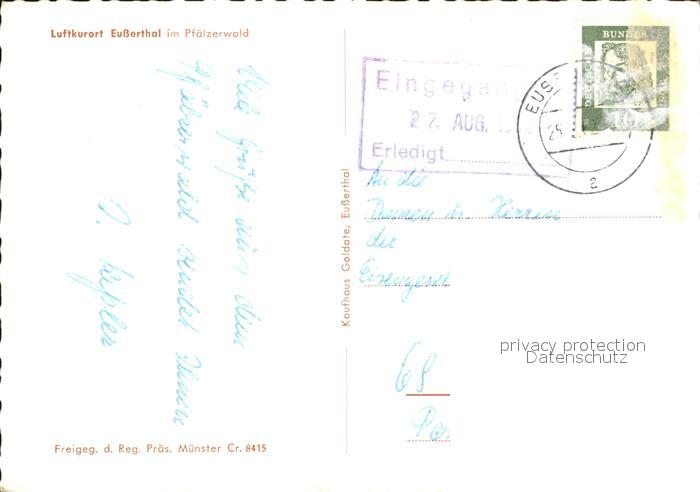 Luftkurort Eußerthal im Pfälzerwald
Viele Grüße aus dem
Pfälzerwald sendet Ihnen
J. Keßler
Freigeg. d. Reg. Präs. Münster Cr. 8415
Kaufhaus Goldate, Eußerthal
Eingegang
27. AUG. 1
Erledigt
BUNDES
EUSS
25.
a
An die
Damen u. Herren
der
68
privacy protection
Datenschutz